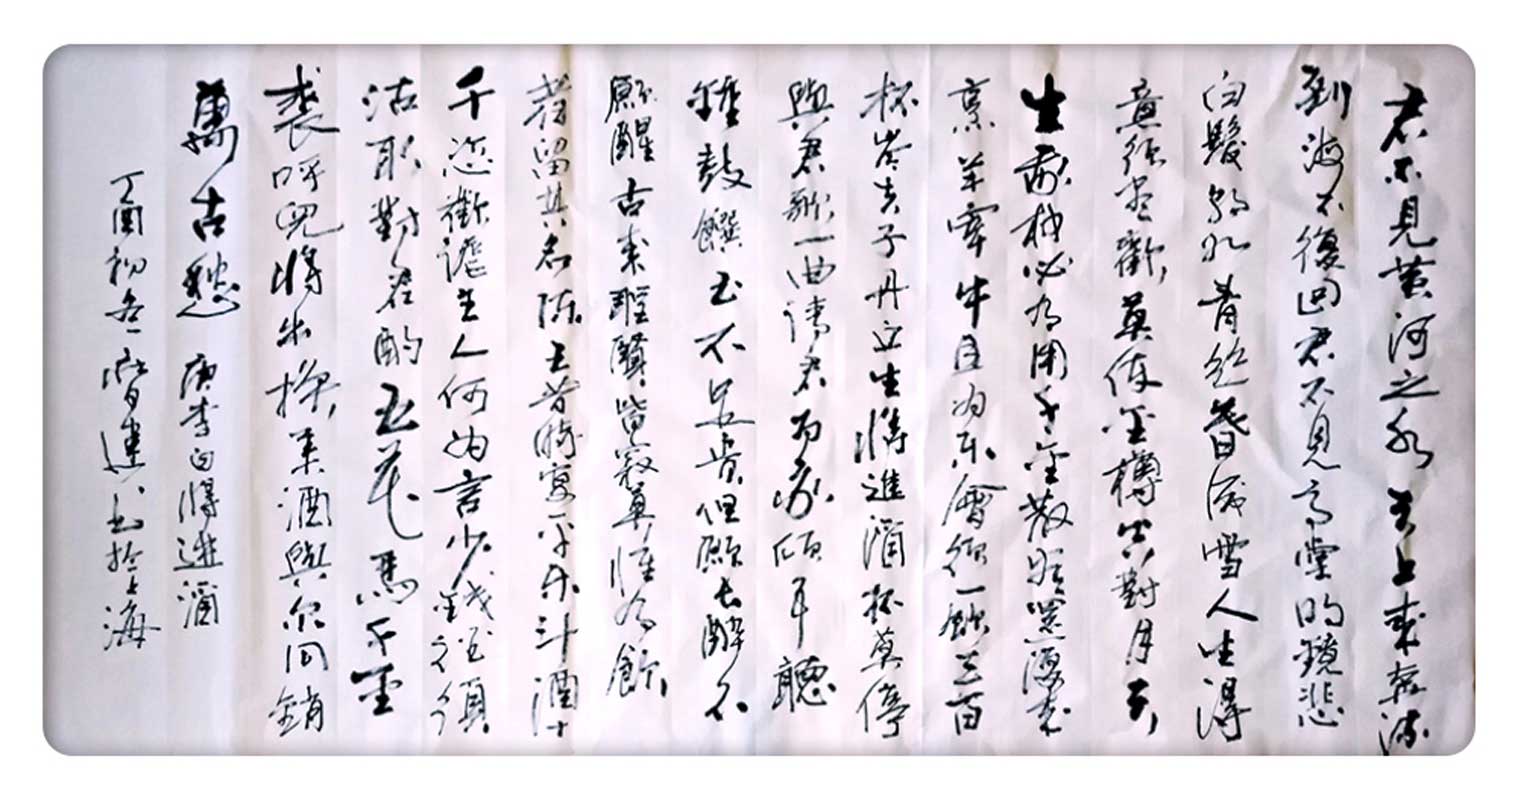 君不見黃河之水天上來奔流
到海不復回君不見高堂明鏡悲
白髮朝如青絲暮成雪人生得
意須盡歡莫使金樽空對月天
生我材必有用千金散盡還復來
烹羊宰牛且為樂會須一飲三百
杯岑夫子丹丘生將進酒杯莫停
與君歌一曲請君為我傾耳聽
鐘鼓饌玉不足貴但願長醉不
願醒古來聖賢皆寂寞惟有飲
者留其名陳王昔時宴平樂斗酒十
千恣歡謔主人何為言少錢徑須
沽取對君酌五花馬千金
裘呼兒將出換美酒與爾同銷
萬古愁 唐李白將進酒
丁酉初冬 建書於上海